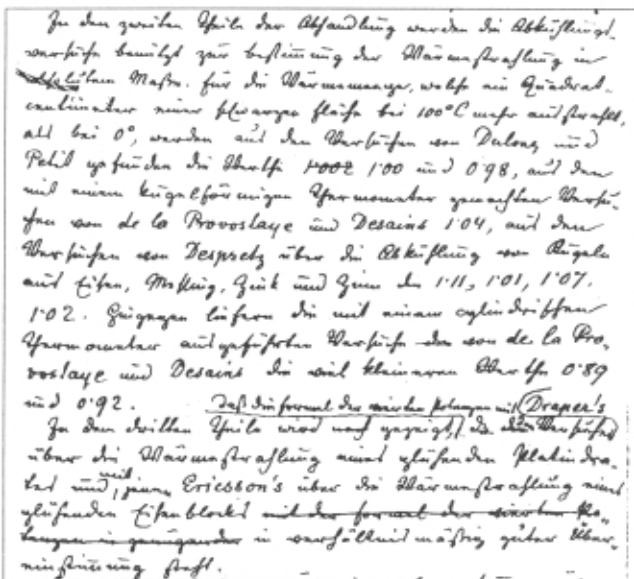 In dem zweiten Theile der Abhandlung werden die Abkühlungs-
versuche benützt zur Bestimmung der Wärmestrahlung in
absolutem Maße. Für die Wärmemenge, welche ein Quadrat-
centimeter einer schwarzen Fläche bei 100°C mehr ausstrahlt,
als bei 0°, werden aus den Versuchen von Dulong und
Petit gefunden die Werthe 1·00 und 0·98, aus den
mit einem kugelförmigen Thermometer gemachten Versu-
chen von de la Provostaye und Desains 1·04, aus den
Versuchen von Despretz über die Abkühlung von Kugeln
aus Eisen, Messing, Zink und Zinn die 1·11, 1·01, 1·07,
1·02. Hingegen liefern die mit einem cylindrischen
Thermometer ausgeführten Versuche von de la Pro-
vostaye und Desains die viel kleineren Werthe 0·89
und 0·92. Daß die Formel der vierten Potenzen mit Draper's
In dem dritten Theile wird noch gezeigt, Versuchen
über die Wärmestrahlung eines glühenden Platindra-
tes und mit jenen Ericsson's über die Wärmestrahlung eines
glühenden Eisenblocks mit der Formel der vierten Po-
tenzen in genügender in verhältnismäßig guter Über-
einstimmung steht.